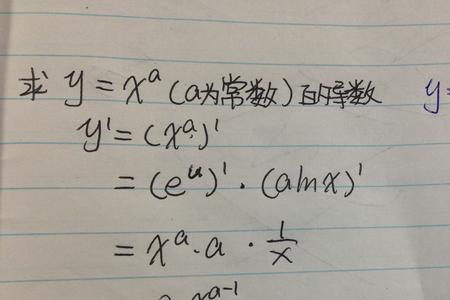 求 y = xᵃ (a为常数) 的导数 y=
y' = (xᵃ)'
= (eᵘ)' · (alnx)'
= xᵃ · a · 1/x
xᵃ⁻¹